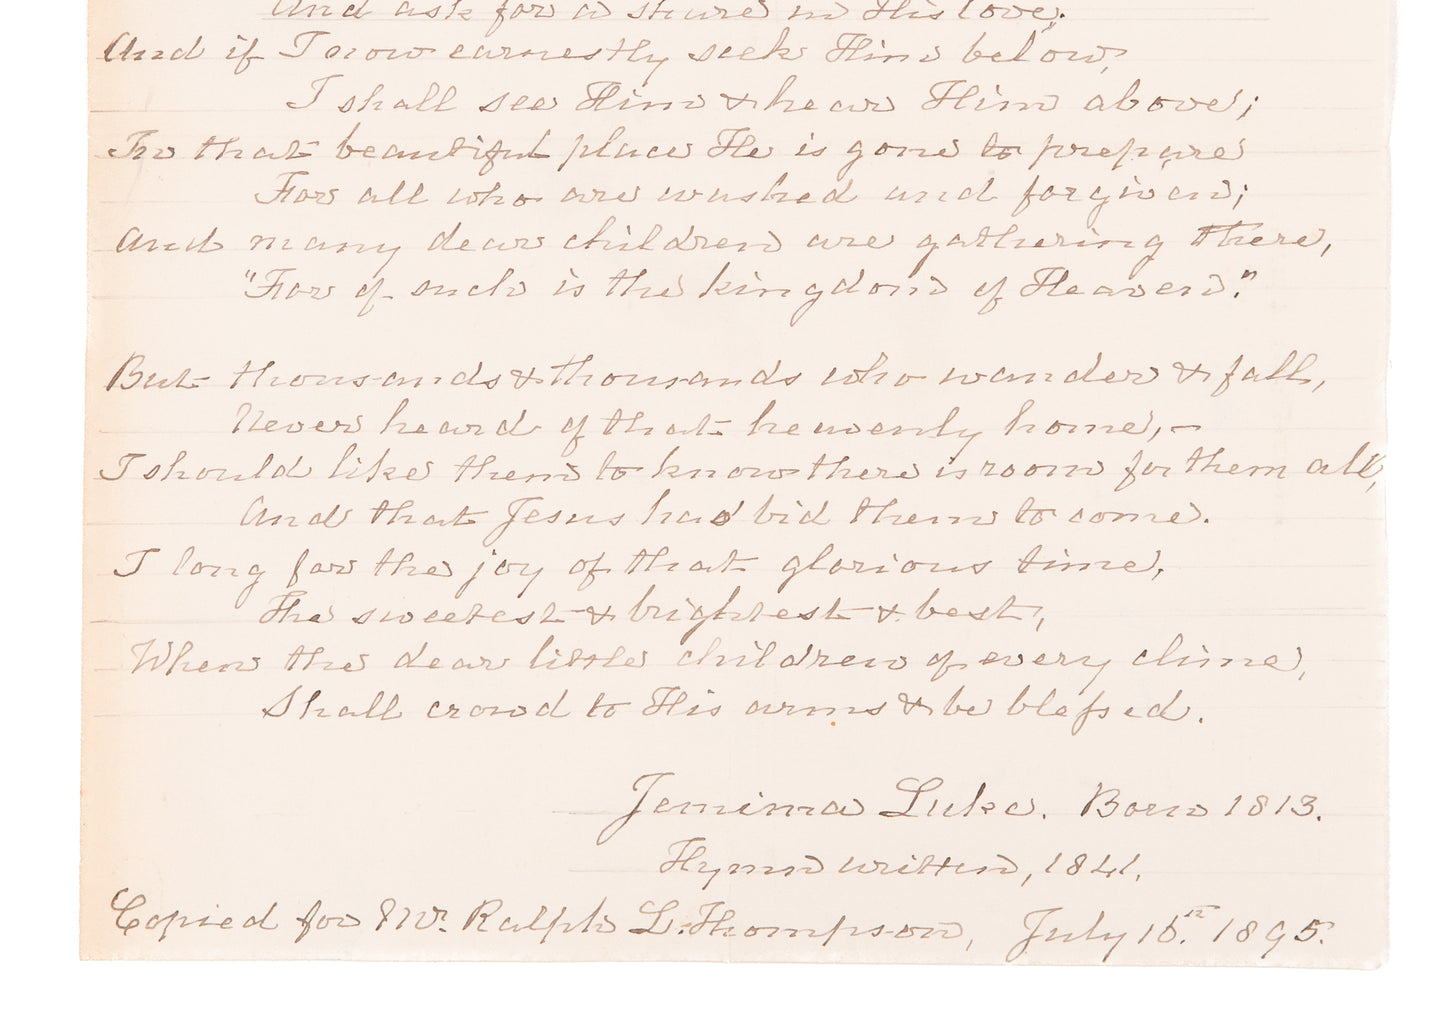 And ask for a share in His love;
And if I now earnestly seek Him below,
I shall see Him & hear Him above;
In that beautiful place He is gone to prepare
For all who are washed and forgiven;
And many dear children are gathering there,
"For of such is the kingdom of Heaven."
But thousands & thousands who wander & fall,
Never heard of that heavenly home,-
I should like them to know there is room for them all,
And that Jesus has bid them to come.
I long for the joy of that glorious time,
The sweetest & brightest & best,
When the dear little children of every clime,
Shall crowd to His arms & be blessed.
Jemima Luke. Born 1813.
Hymn written, 1841.
Copied for Mr. Ralph L. Thompson, July 1895.